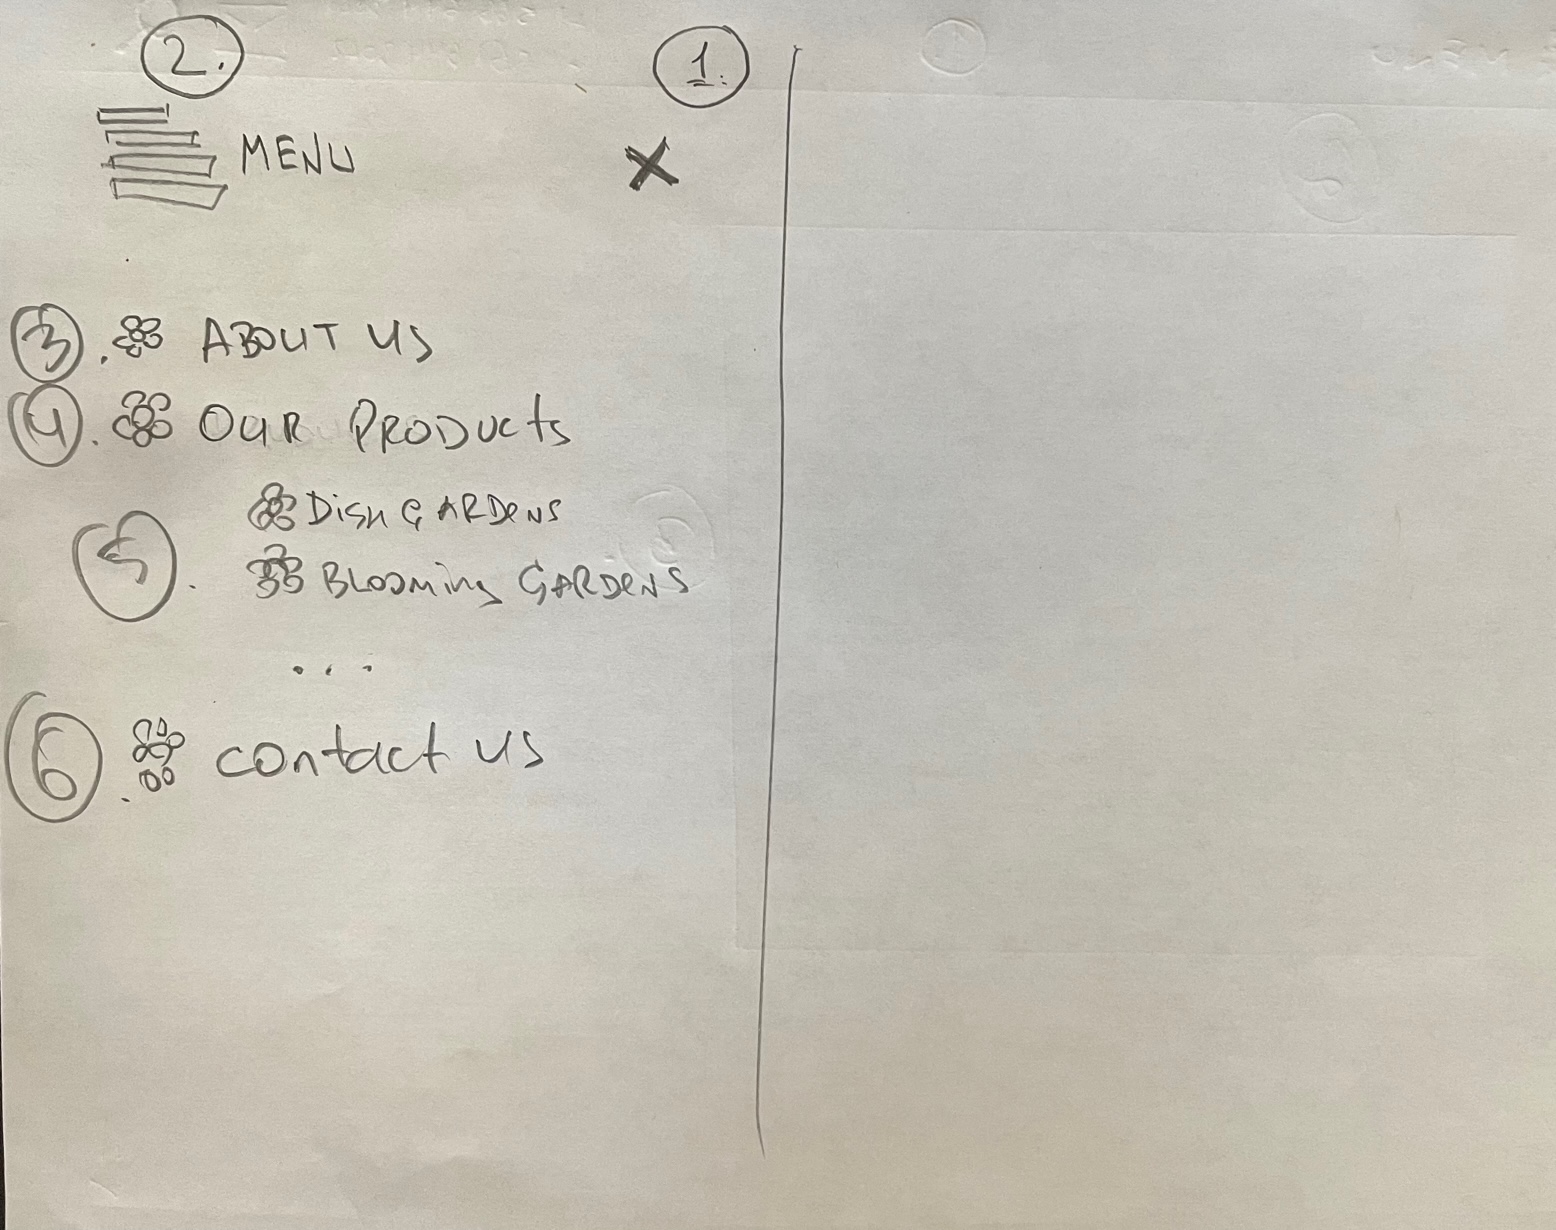 2.
1.
MENU
X
3. ABOUT US
4. OUR PRODUCTS
DISH GARDENS
5. BLOOMING GARDENS
...
6. contact us